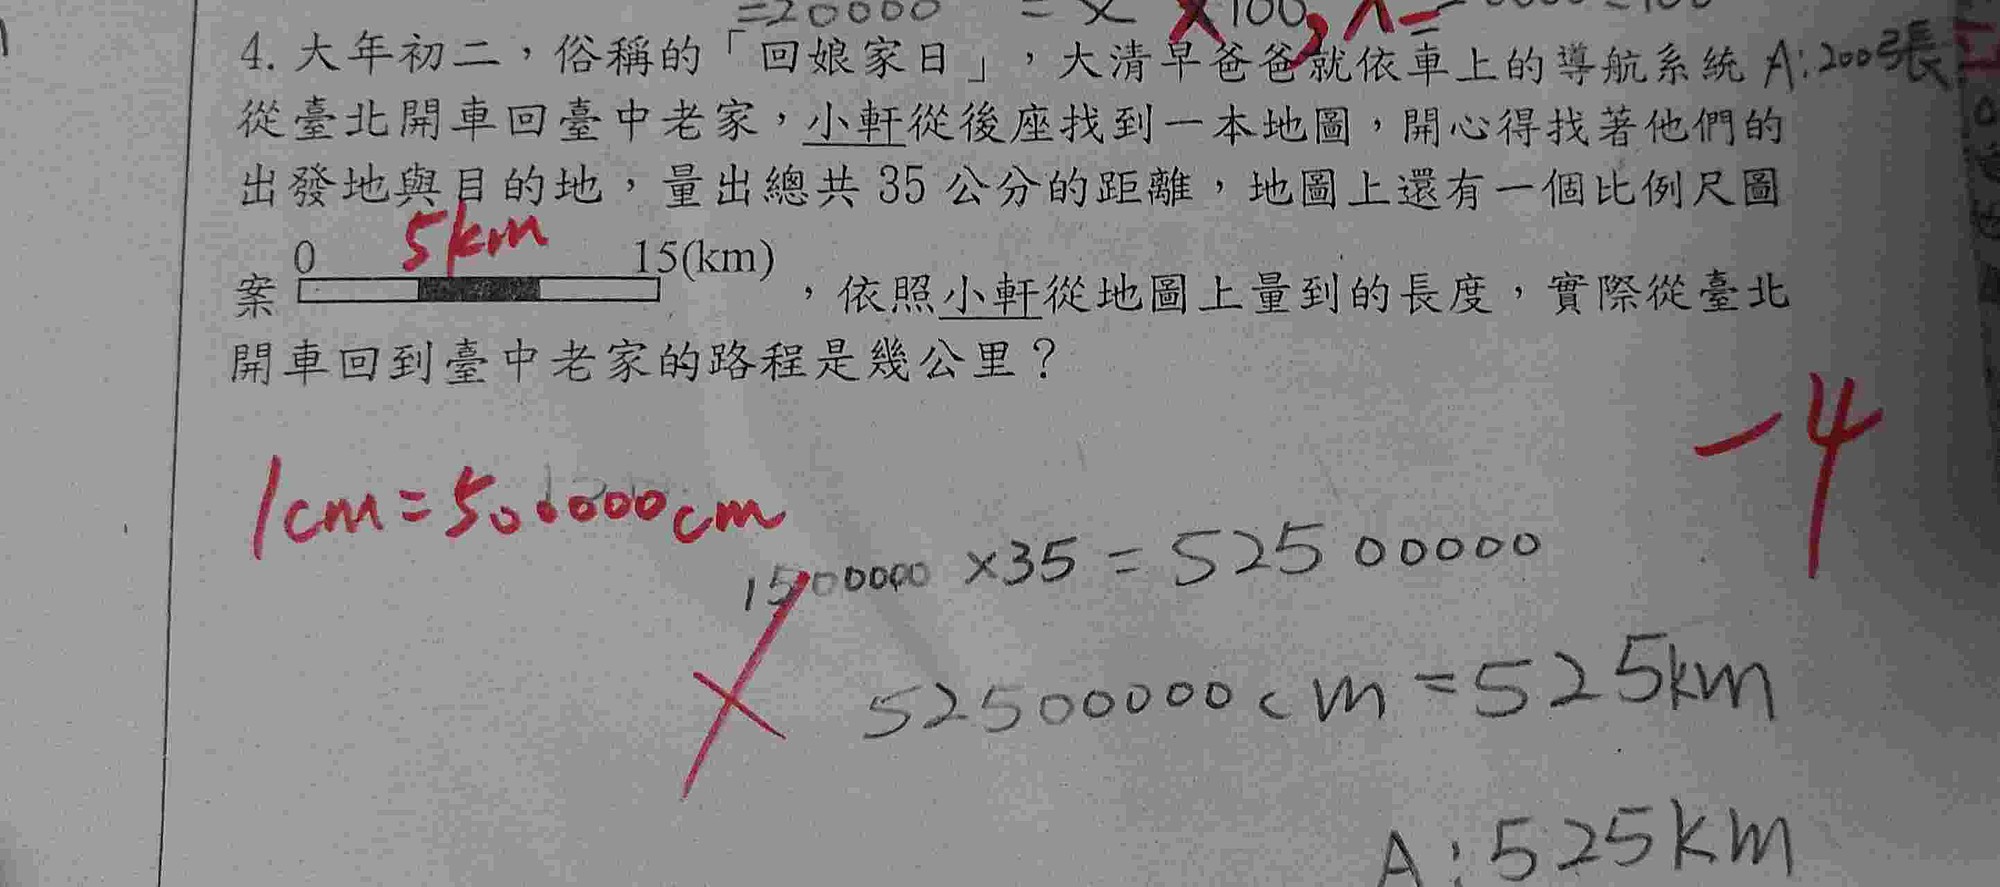 =20000 = x ×100, x=
4. 大年初二，俗稱的「回娘家日」，大清早爸爸就依車上的導航系統 A:200張
從臺北開車回臺中老家，小軒從後座找到一本地圖，開心得找著他們的
出發地與目的地，量出總共 35 公分的距離，地圖上還有一個比例尺圖
5km
0 15(km)
案 ，依照小軒從地圖上量到的長度，實際從臺北
開車回到臺中老家的路程是幾公里？
-4
1cm=500000cm
1500000 ×35 = 52500000
52500000cm=525km
A:525km